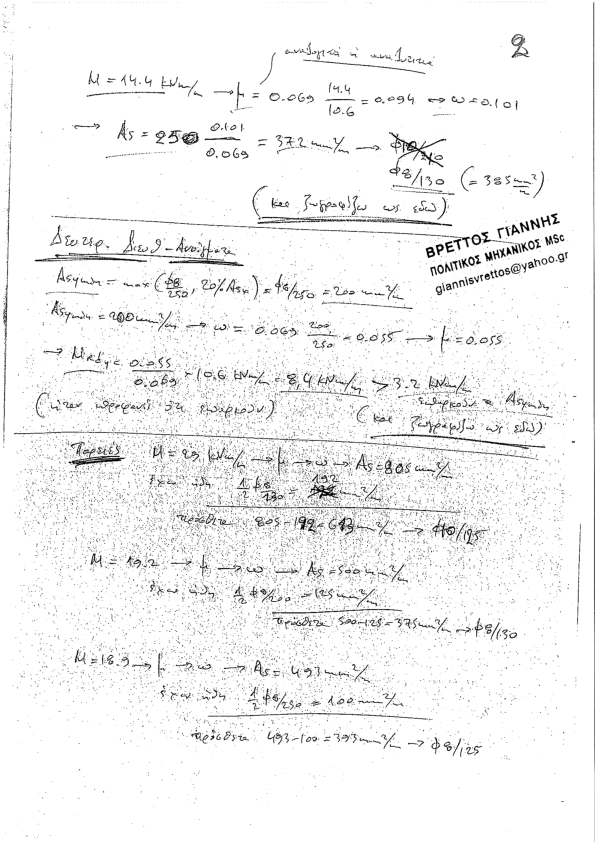 2
αναλογικά ή αναλυτικά
M = 14.4 kNm/m → μ = 0.069 14.4/10.6 = 0.094 ⇔ ω = 0.101
→ As = 250 0.101/0.069 = 372 mm²/m → Φ8/130 (= 385 mm²/m)
(και ζωγραφίζω ως εδώ)
ΒΡΕΤΤΟΣ ΓΙΑΝΝΗΣ
ΠΟΛΙΤΙΚΟΣ ΜΗΧΑΝΙΚΟΣ MSc
giannisvrettos@yahoo.gr
Δευτερ. Διευθ - Ανοίγματα
Asymin = max (Φ8/250, 20% Asx) = Φ8/250 = 200 mm²/m
Asymin = 200 mm²/m → ω = 0.069 200/250 = 0.055 → μ = 0.055
→ MRdy = 0.055/0.069 × 10.6 kNm/m = 8,4 kNm/m > 3.2 kNm/m
επαρκούν τα Asymin
(ήταν προφανές ότι επαρκούν)
(και ζωγραφίζω ως εδώ)
Παρειές
M = 29 kNm/m → μ → ω → As = 805 mm²/m
έχω ήδη 1/2 Φ8/130 = 192 mm²/m
πρόσθετα 805 - 192 = 613 mm²/m → Φ10/125
M = 19.2 → μ → ω → As = 500 mm²/m
έχω ήδη 1/2 Φ8/200 = 125 mm²/m
πρόσθετα 500 - 125 = 375 mm²/m → Φ8/130
M = 18.9 → μ → ω → As = 493 mm²/m
έχω ήδη 1/2 Φ8/250 = 100 mm²/m
πρόσθετα 493 - 100 = 393 mm²/m → Φ8/125